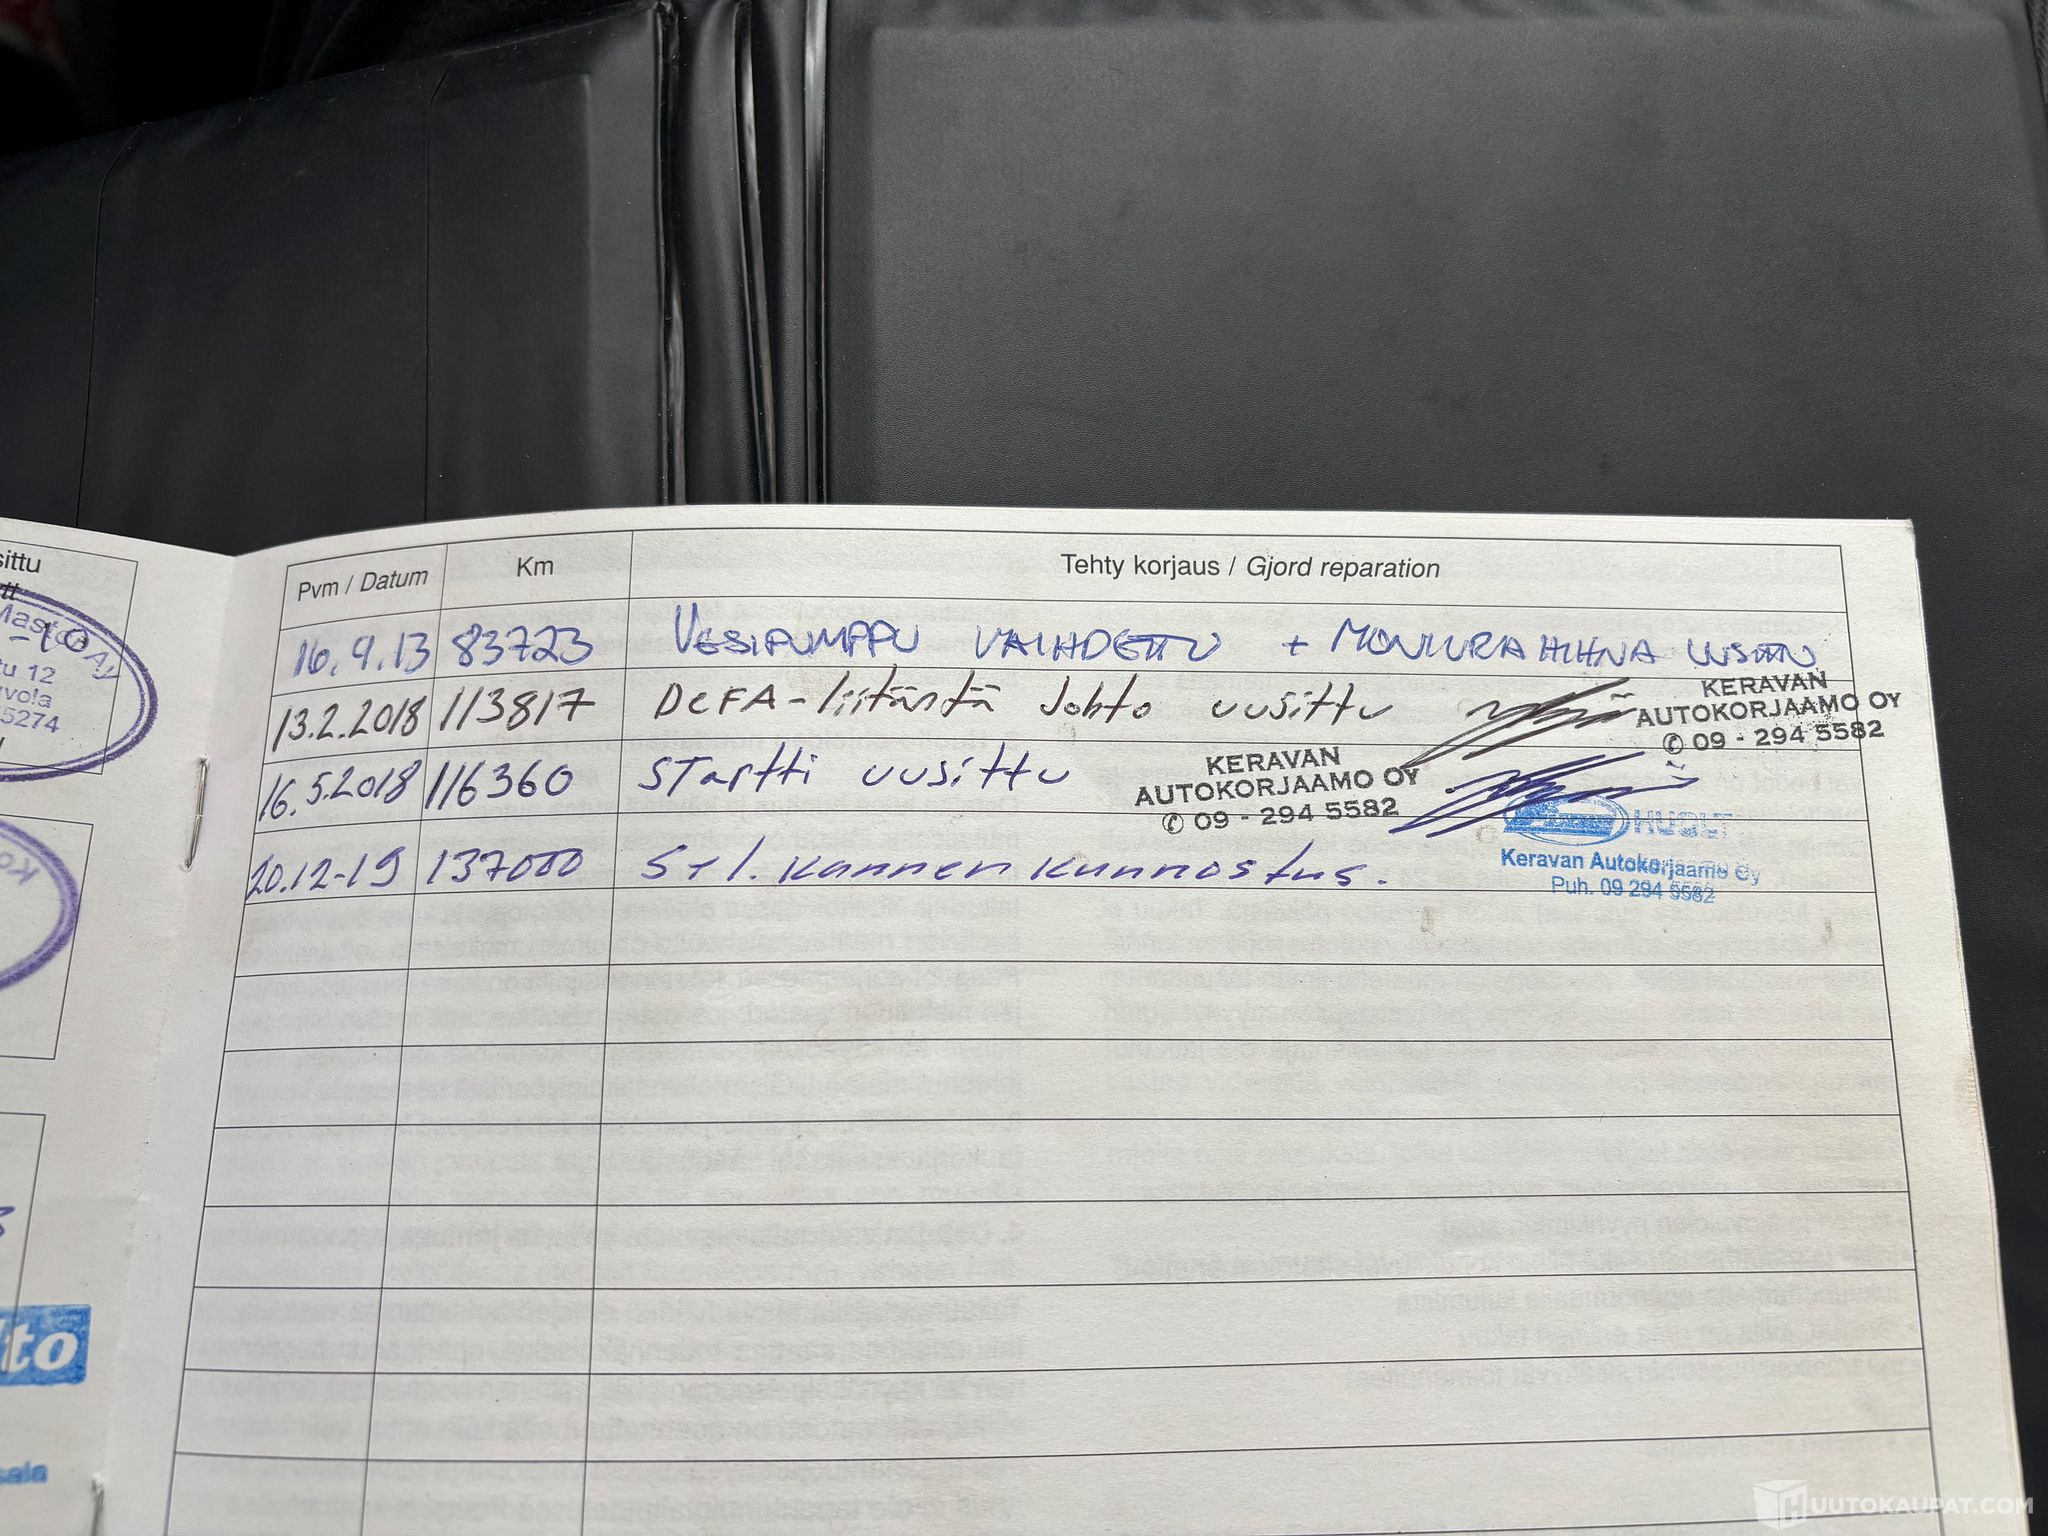 sittu
Masto
-10
tu 12
vola
5274
Pvm / Datum Km Tehty korjaus / Gjord reparation
16.9.13 83723 VESIPUMPPU VAIHDETTU + MONIURAHIHNA UUSITTU
13.2.2018 113817 DEFA-liitäntä Johto uusittu
KERAVAN
AUTOKORJAAMO OY
✆ 09 - 294 5582
16.5.2018 116360 STartti uusittu
KERAVAN
AUTOKORJAAMO OY
✆ 09 - 294 5582
20.12-19 137000 S+l. Kannen Kunnostus.
HUOLT
Keravan Autokorjaamo Oy
Puh. 09 294 5582
to
sala
HUUTOKAUPAT.COM